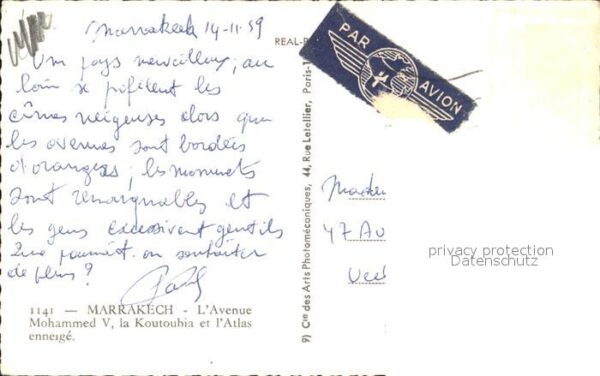 Marrakech 14-11-59
Un pays merveilleux; au
loin se profilent les
cîmes neigeuses alors que
les avenues sont bordées
d'orangers; les monuments
sont remarquables et
les gens excessivent gentils
Que pourrait-on souhaiter
de plus?
1141 — MARRAKECH - L'Avenue
Mohammed V, la Koutoubia et l'Atlas
enneigé.
REAL-
9) Cie des Arts Photomécaniques, 44, Rue Letellier, Paris-1
PAR
AVION
47 Av
privacy protection
Datenschutz